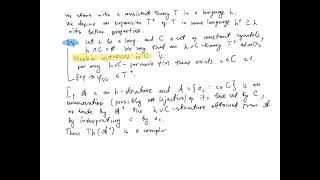 We start with a consistent theory T in a language h.
We define an expansion T⁺ of T in some language h⁺ ⊇ h
with better properties.
Def Let h be a lang. and C a set of constant symbols,
h ∩ C = ∅. We say that an h∪C-theory T⁺ admits
witnesses in C if
for any h∪C-formula φ(x) there exists c ∈ C s.t.
∃xφ → φ ∈ T⁺.
If A is an h-structure and A = {a : c ∈ C} is an
enumeration (possibly not injective) of its base set by C,
we denote by A⁺ the h∪C-structure obtained from A
by interpreting c by a.
Then Th(A⁺) is a